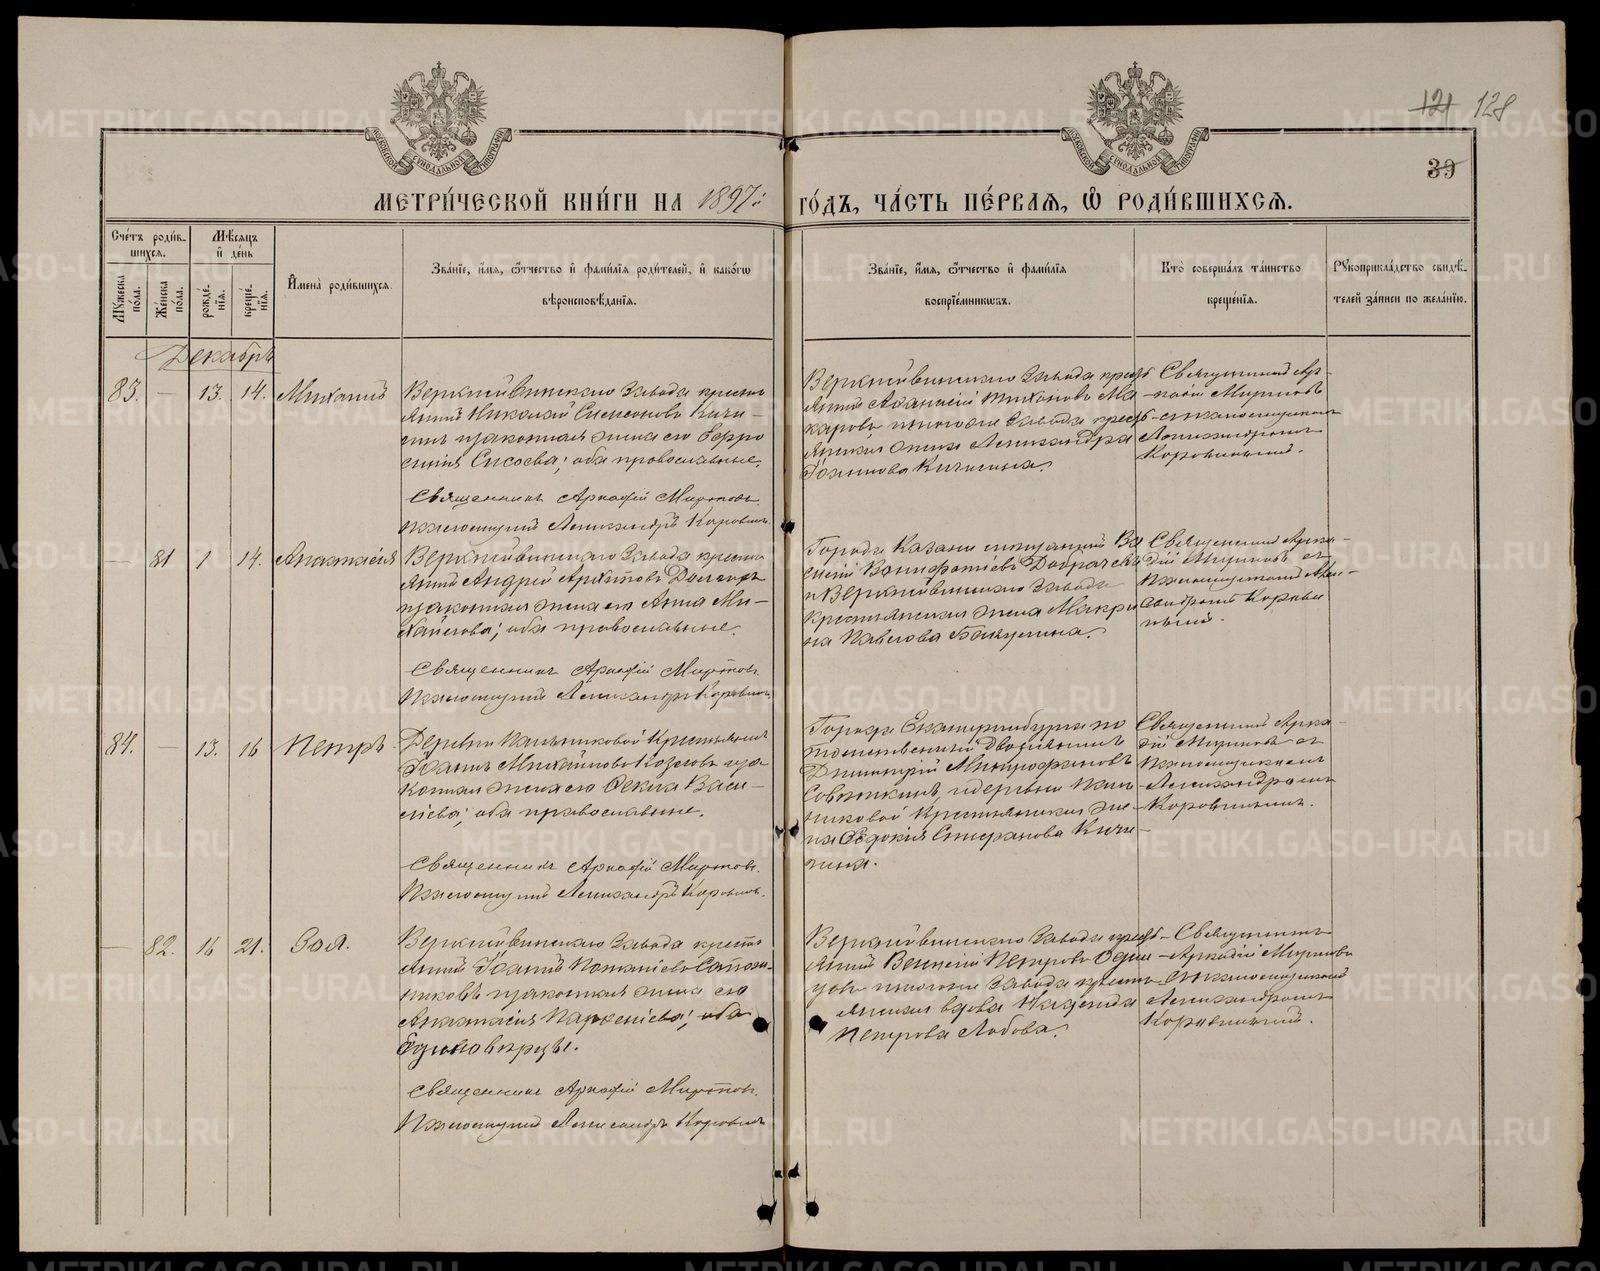 121 128
39
МЕТРИ́ЧЕСКОЙ КНИ́ГИ НА 1897й ГО́ДЪ, ЧА́СТЬ ПЕ́РВАЯ, Ѡ РОДИ́ВШИХСЯ.
Сче́тъ роди́в-
шихся.
Му́жеска по́ла.
Же́нска по́ла.
Мѣ́сяцъ
и҆ де́нь
рожде́-
нїя.
креще́-
нїя.
И҆мена̀ роди́вшихся.
Зва́нїе, и҆́мя, ѻ҆́тчество и҆ фами́лїя роди́телей, и҆ како́гѡ
вѣроисповѣ́данїя.
Зва́нїе, и҆́мя, ѻ҆́тчество и҆ фами́лїя
воспрїе́мникѡвъ.
Кто̀ соверша́лъ та́инство
креще́нїя.
Рꙋкоприкла́дство свидѣ́-
телей за́писи по жела́нїю.
Декабрь
83. — 13. 14. Михаилъ
Верхнейвинскаго Завода кресть
янинъ Николай Симеоновъ Кичи-
гинъ и законная жена его Евфро
синия Сисоева; оба православные.
Священникъ Аркадій Миртовъ
Псаломщикъ Александръ Коровинъ
Верхнейвинскаго Завода кресть
янинъ Аѳанасій Тихоновъ Ма-
каровъ и тогоже Завода кресть-
янская жена Александра
Іоаннова Кичигина.
Священникъ Ар-
кадій Миртовъ
съ псаломщикомъ
Александромъ
Коровинымъ.
— 81 1 14. Анастасія
Верхнейвинскаго Завода кресть
янинъ Андрей
и законная жена его Анна Ми-
хайлова; оба православные.
Священникъ Аркадій Миртовъ
Псаломщикъ Александръ Коровинъ
Города Казани мещанинъ Ва
силій Вонифатіевъ
и Верхнейвинскаго Завода
крестьянская жена Макри
на Павлова Бакулина.
Священникъ Арка-
дій Миртовъ съ
псаломщикомъ Алек-
сандромъ Корови
нымъ.
84. — 13. 16 Петръ
Деревни Пальниковой Крестьянинъ
Іоаннъ Михайловъ Козловъ и за-
конная жена его Ѳекла Васи-
лиева; оба православные.
Священникъ Аркадій Миртовъ.
Псаломщикъ Александръ Коровинъ.
Города Екатеринбурга по
томственный Дворянинъ
Димитрій Митрофановъ
и деревни Паль
никовой Крестьянская же-
на Евдокія Стефанова Кичи-
гина.
Священникъ Арка-
дій Миртовъ съ
Псаломщикомъ
Александромъ
Коровинымъ.
— 82. 16 21. Зоя.
Верхнейвинскаго Завода кресть
янинъ Іоаннъ Сапож-
никовъ и законная жена его
Анастасія Парѳениева; оба
Единоверцы.
Священникъ Аркадій Миртовъ.
Псаломщикъ Александръ Коровинъ
Верхнейвинскаго Завода кресть-
янинъ Петровъ Один-
цовъ и тогоже Завода кресть-
янская вдова Надежда
Петрова Лобова.
Священникъ
Аркадій Миртовъ
съ псаломщикомъ
Александромъ
Коровинымъ.
METRIKI.GASO-URAL.RU